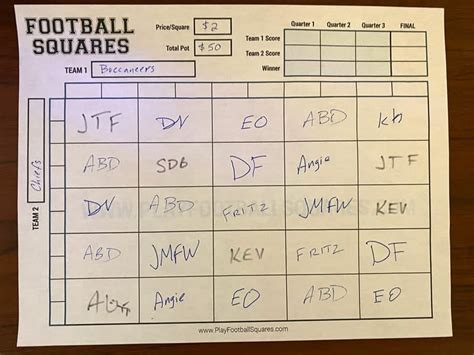 FOOTBALL
SQUARES
Price/Square $2
Total Pot $50
TEAM 1 Buccaneers
Quarter 1 Quarter 2 Quarter 3 FINAL
Team 1 Score
Team 2 Score
Winner
TEAM 2 Chiefs
JTF DV EO ABD kh
ABD SDG DF Angie JTF
DV ABD FRITZ JMFW KEV
ABD JMFW KEV FRITZ DF
Angie EO ABD EO
WWW.PLAYFOOTBALLSQUARES.COM
www.PlayFootballSquares.com